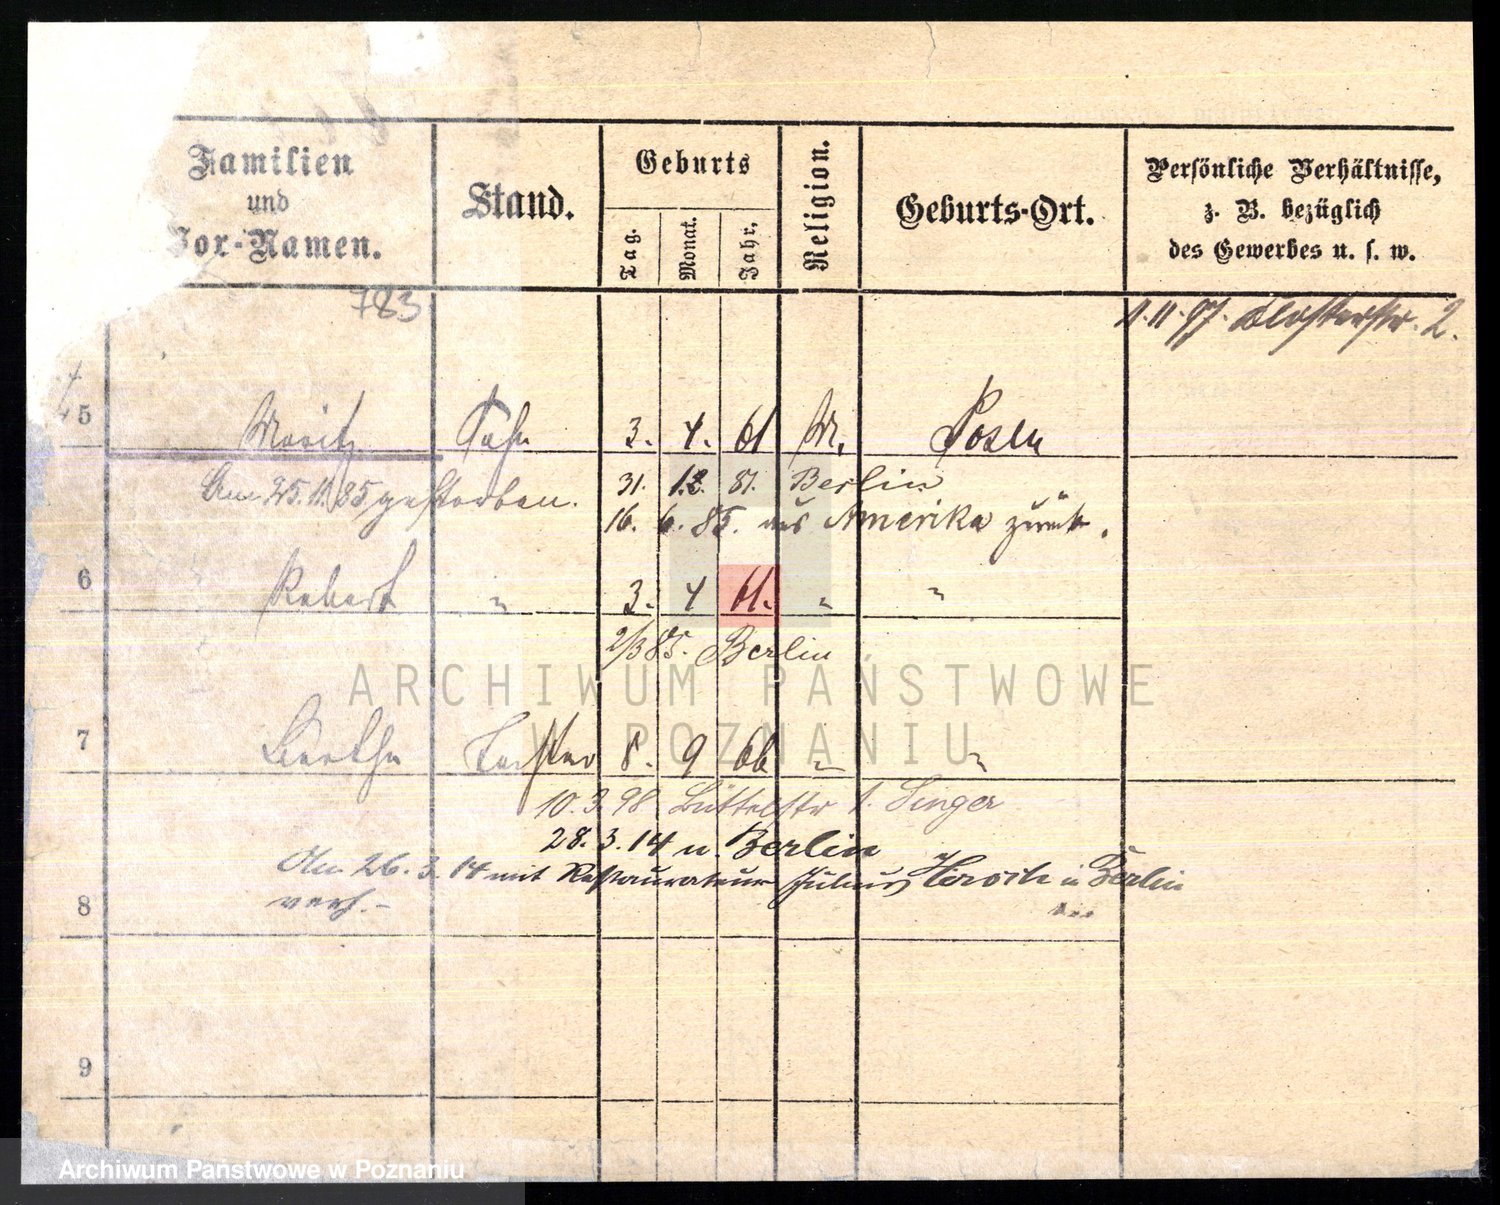 Familien
und
Vor-Namen.
Stand.
Geburts
Tag.
Monat.
Jahr.
Religion.
Geburts-Ort.
Persönliche Verhältnisse,
z. B. bezüglich
des Gewerbes u. s. w.
783
4.11.97. Klosterstr. 2.
5 Moritz Sohn 3. 4. 61 M. Posen
Am 25.11.85 gestorben. 31. 12. 81. Berlin
16. 6. 85. aus Amerika zurück.
6 Robert " 3. 4 61. " "
2/3 85. Berlin
7 Bertha Tochter 8. 9 66 " "
10.3.98 Büttelstr 1. Singer
28.3.14 n. Berlin
Am 26.3.14 mit Restaurateur Julius in Berlin
8 verh. -
9
ARCHIWUM PAŃSTWOWE
W POZNANIU
Archiwum Państwowe w Poznaniu